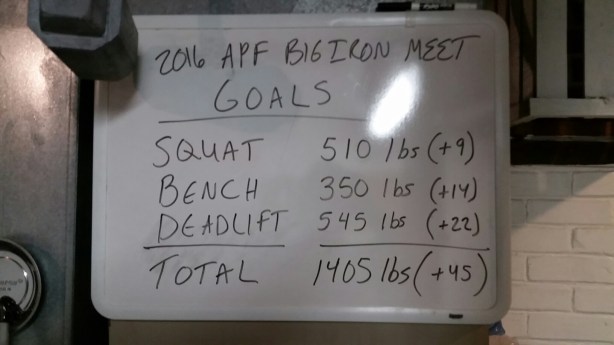 2016 APF BIG IRON MEET
GOALS
SQUAT 510 lbs (+9)
BENCH 350 lbs (+14)
DEADLIFT 545 lbs (+22)
TOTAL 1405 lbs (+45)